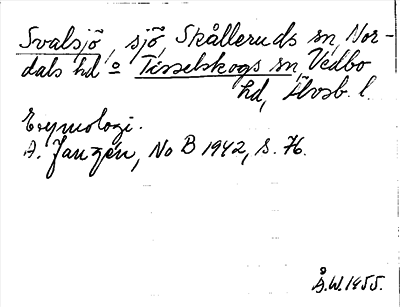 Svalsjö, sjö, Skålleruds sn, Nor-
dals hd o Tisselskogs sn, Vedbo
hd, Älvsb. l.
Etymologi.
A. Janzén, No B 1942, s. 76.
Å.W. 1955.